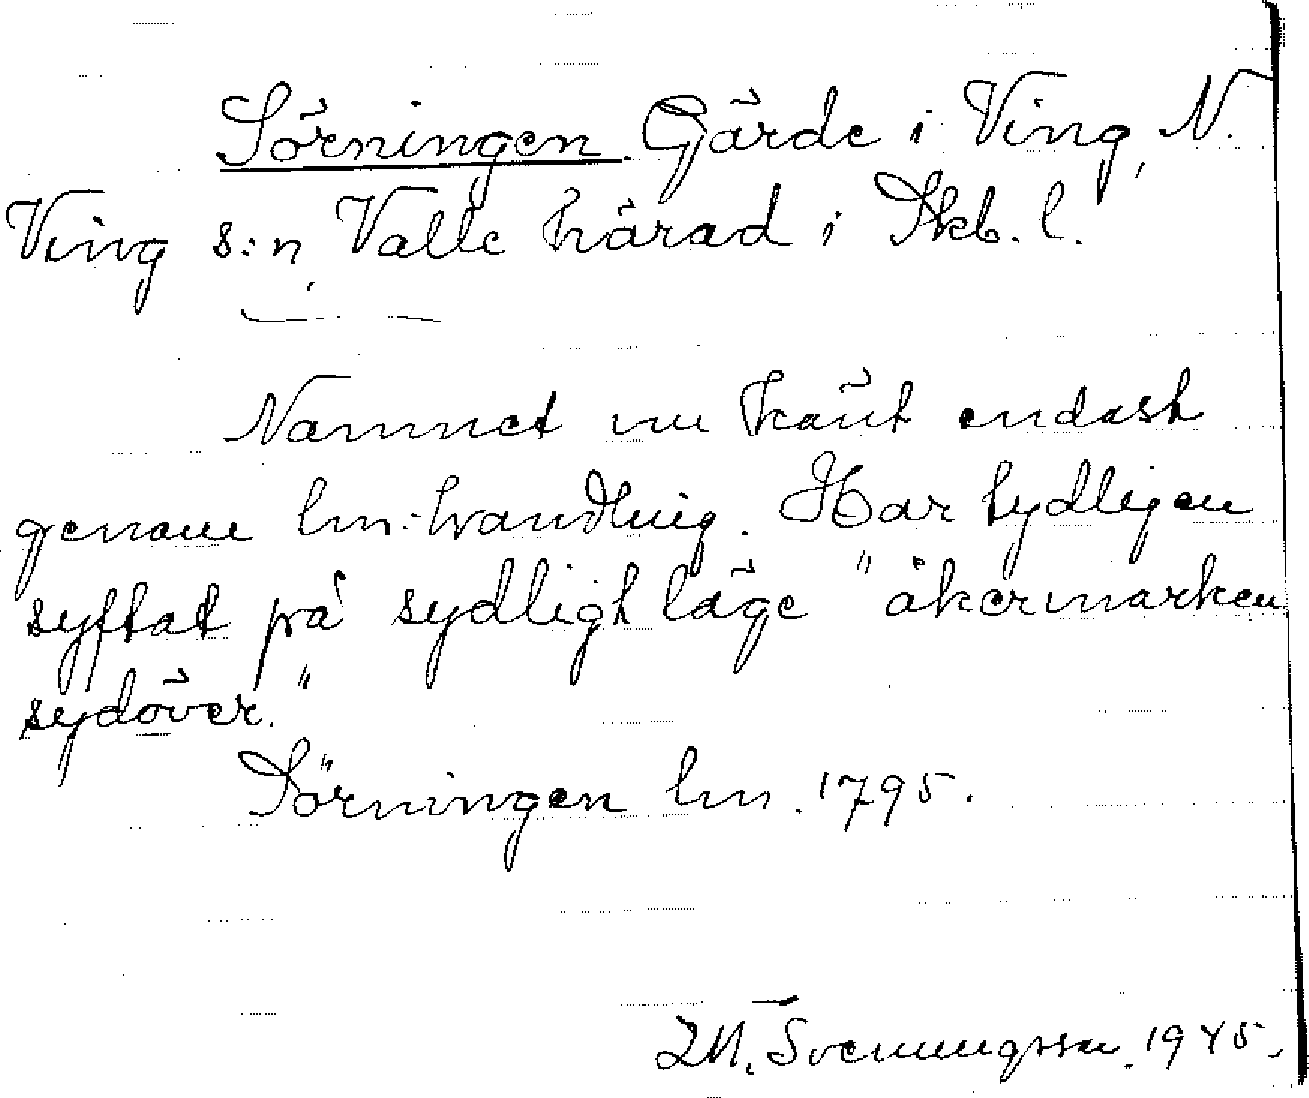 Sörningen. Gärde i Ving, N.
Ving s:n, Valle härad i Skb. l.
Namnet nu känt endast
genom lm-handling. Har tydligen
syftat på sydligt läge "åkermarken
sydöver."
Sörningen lm. 1795.
Svenningsson. 1945.